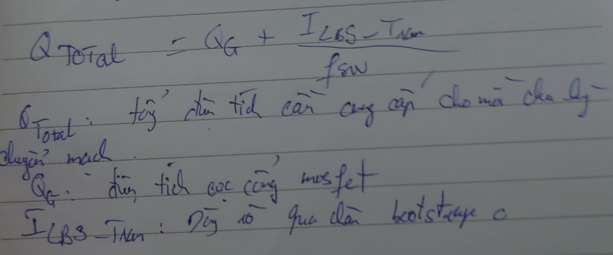 Q_Total = Q_G + I_LBS-Tran / f_SW
Q_Total: tổng điện tích cần cung cấp cho mỗi chu kỳ
chuyển mạch
Q_G: điện tích cực cổng mosfet
I_LBS-Tran: Dòng rò qua bootstrap